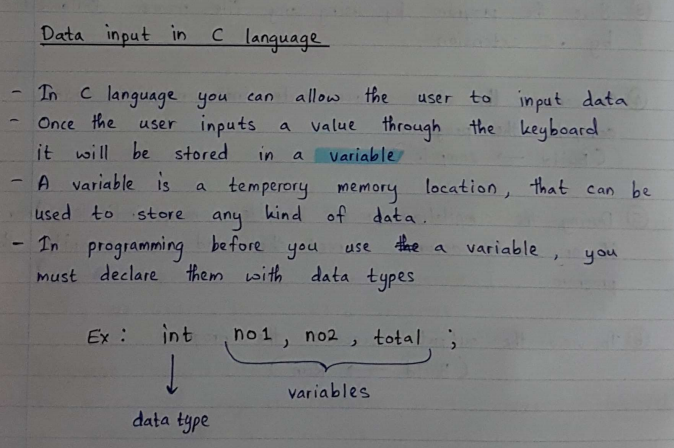 Data input in C language
- In C language you can allow the user to input data
- Once the user inputs a value through the keyboard
it will be stored in a variable
- A variable is a temperory memory location, that can be
used to store any kind of data.
- In programming before you use the a variable, you
must declare them with data types
Ex : int no1, no2, total ;
variables
data type